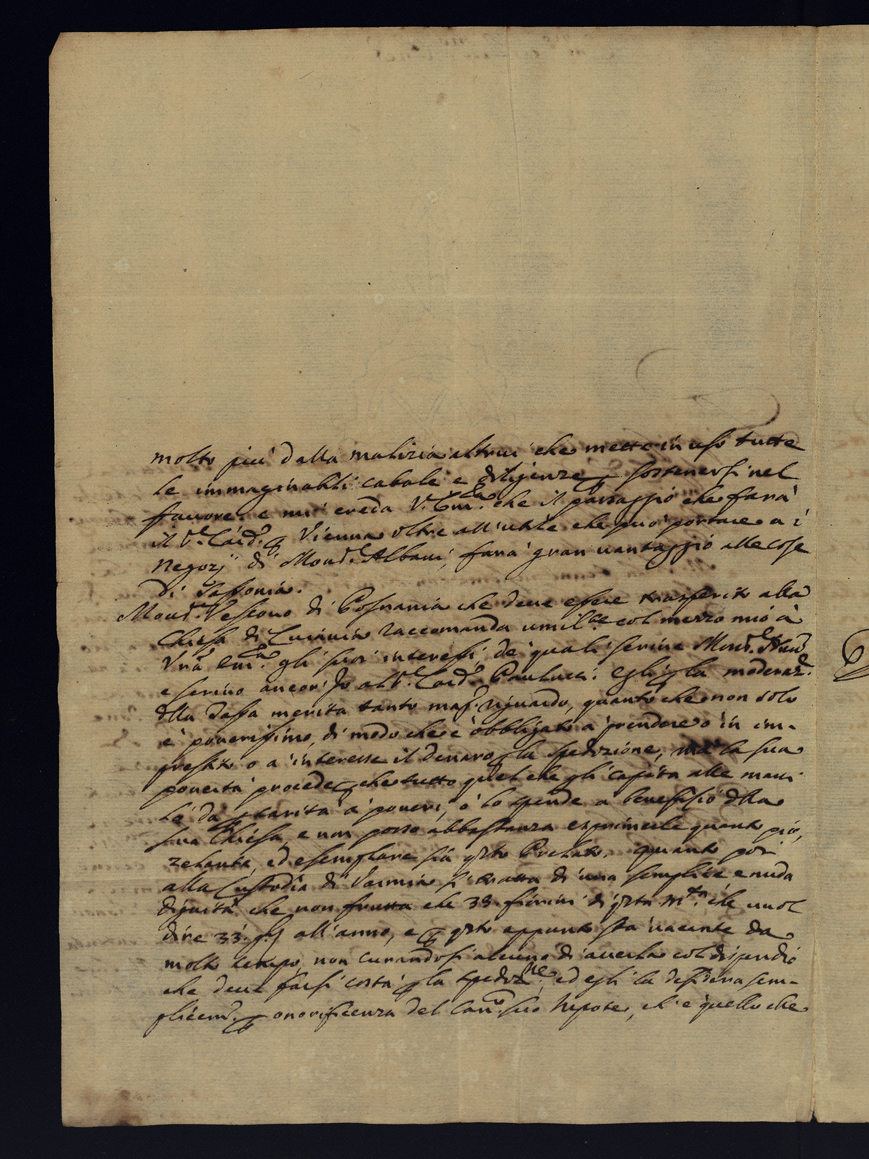 molto più dalla malizia altrui che mette in uso tutte
le immaginabili cabale e diligenze p sostenersi nel
favore: e mi creda V. Em.za che il passaggio che farà
il S.r Card.e p Vienna oltre all'utile che può portare a i
negozj di Mons.r Albani, farà gran vantaggio alle cose
di Sassonia.
Mons.r Vescovo di Posnania che deve essere trasferito alla
Chiesa di Cuiavia raccomanda umil.te col mezzo mio à
Vrã Em.za gli suoi interessi de quali scrive Mons.r
e scrivo ancor Io al S.r Card.e Paulucci: egli p la moderaz.e
dlla Tassa merita tanto mag.r riguardo, quanto che non solo
è poverissimo, di modo che è obbligato a prendere o in im-
prestito o a interesse il denaro p la spedizione, mà la sua
povertà procede p che tutto quel che gli capita alle mani
lo dà p carità a' poveri, o lo spende a beneficio dlla
sua Chiesa, e non posso abbastanza esprimerle quanto pio,
zelante, ed esemplare sia qsto Prelato. quanto poi
alla Custodia di Varmia si tratta di una semplice e nuda
dignità che non frutta che 33 fiorini di qsta m.ta che vuol
dire 33: all'anno, e p qsto appunto sta vacante da
molto tempo, non curandosi alcuno di averla col dispendio
che deve farsi costà p la spediz.ne, ed egli la desidera sem-
plicem.e p onorificenza del Can.co suo Nipote, ch'è quello che